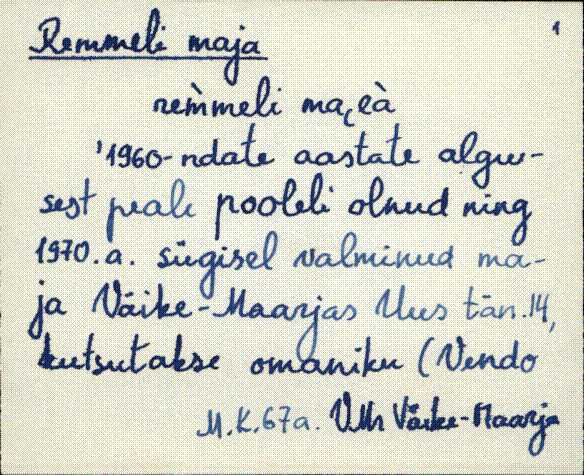 Remmeli maja 1
rem̀meli ma͔eà
'1960-ndate aastate algu-
sest peale pooleli olnud ning
1970.a. sügisel valminud ma-
ja Väike-Maarjas Uus tän.14,
kutsutakse omaniku (Vendo
M.K.67a. VMr Väike-Maarja